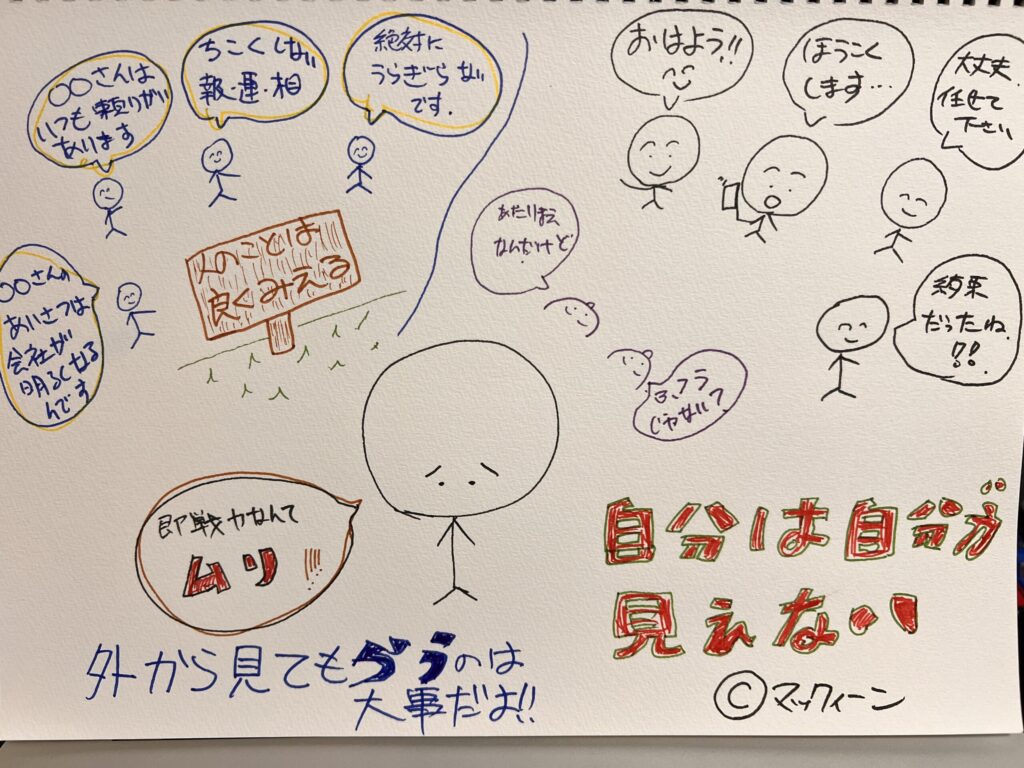 〇〇さんは
いつも頼りがい
あります
ちこくしない
報・連・相
絶対に
うらぎらない
です.
〇〇さんの
あいさつは
会社が
明るくなる
んです
人のことは
良くみえる
おはよう!!
ほうこく
します…
大丈夫.
任せて
下さい
あたりまえ
なんだけど
フラ
じゃない?
約束
だったね
!!
即戦力なんて
ムリ
自分は自分が
見えない
外から見てもらうのは
大事だよ!!
©マックィーン